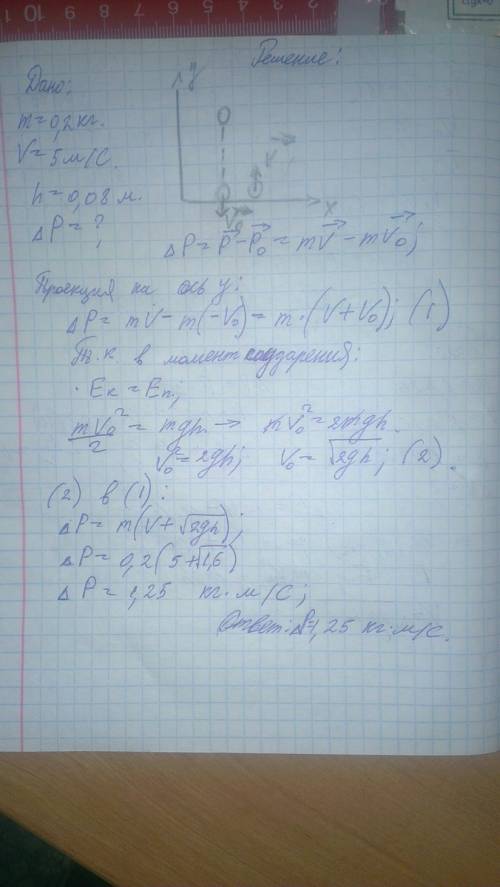 10 9 8 7 6 5 4 3 2
Решение:
Дано:
y
m=0,2 кг.
V=5 м/с.
V
h=0,08 м.
V₀
x
ΔP=?
ΔP=P⃗-P⃗₀=mV⃗-mV⃗₀;
Проекция на ось y:
ΔP=mV-m(-V₀)=m·(V+V₀); (1)
Т.к в момент соударения:
·Eк=Eп;
mV₀²/2=mgh. → mV₀²=2mgh.
V₀²=2gh; V₀=√2gh; (2).
(2) в (1):
ΔP=m(V+√2gh);
ΔP=0,2(5+√1,6)
ΔP=1,25 кг·м/с;
Ответ: ΔP=1,25 кг·м/с.